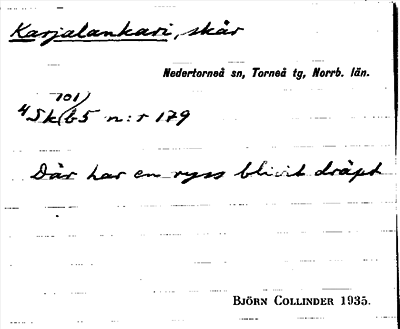 Karjalankari, skär
Nedertorneå sn, Torneå tg, Norrb. län.
101)
4Sk(b5 n:r 179
Där har en ryss blivit dräpt
BJÖRN COLLINDER 1935.